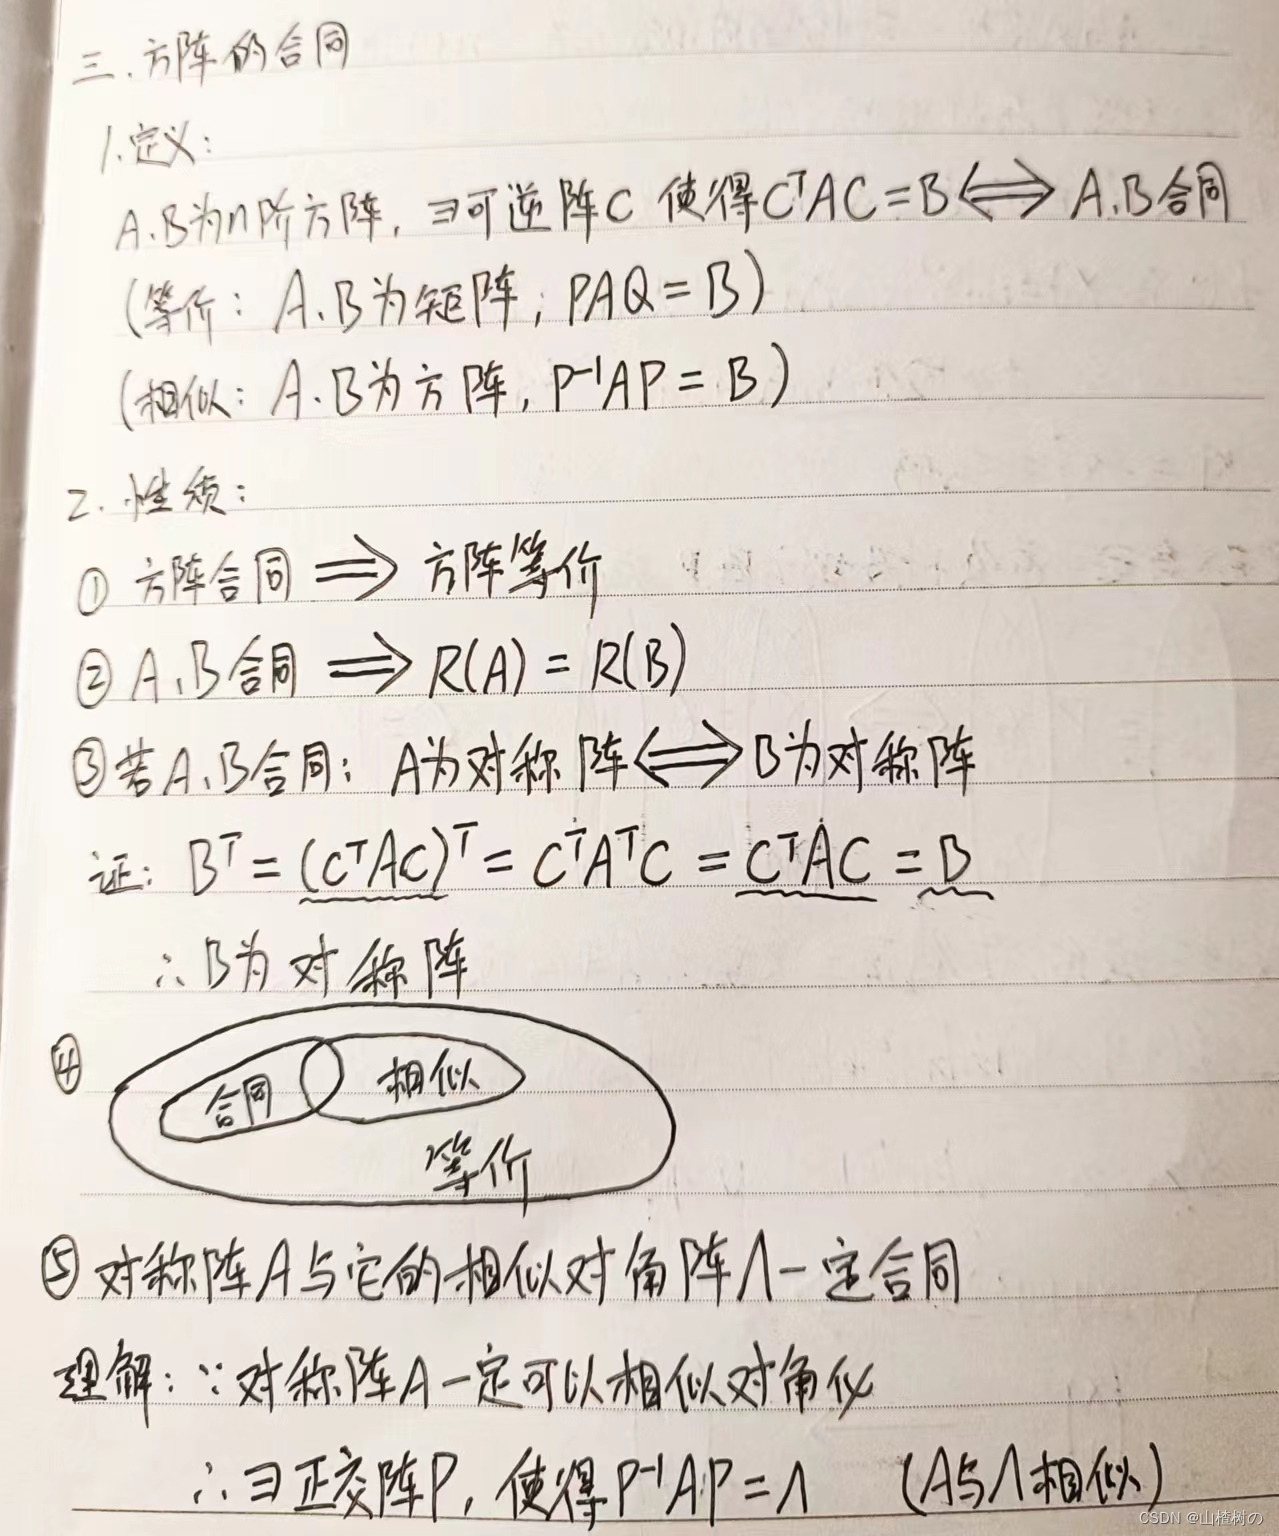 三.方阵的合同
1.定义:
A.B为n阶方阵,∃可逆阵C 使得CᵀAC=B⟺A.B合同
(等价: A.B为矩阵; PAQ=B)
(相似: A.B为方阵, P⁻¹AP=B)
2.性质:
① 方阵合同 ⟹ 方阵等价
② A、B合同 ⟹ R(A)=R(B)
③若A、B合同: A为对称阵⟺B为对称阵
证: Bᵀ=(CᵀAC)ᵀ=CᵀAᵀC=CᵀAC=B
∴B为对称阵
④
合同 相似
等价
⑤对称阵A与它的相似对角阵Λ一定合同
理解:∵对称阵A一定可以相似对角化
∴∃正交阵P,使得P⁻¹AP=Λ (A与Λ相似)
CSDN @山楂树の